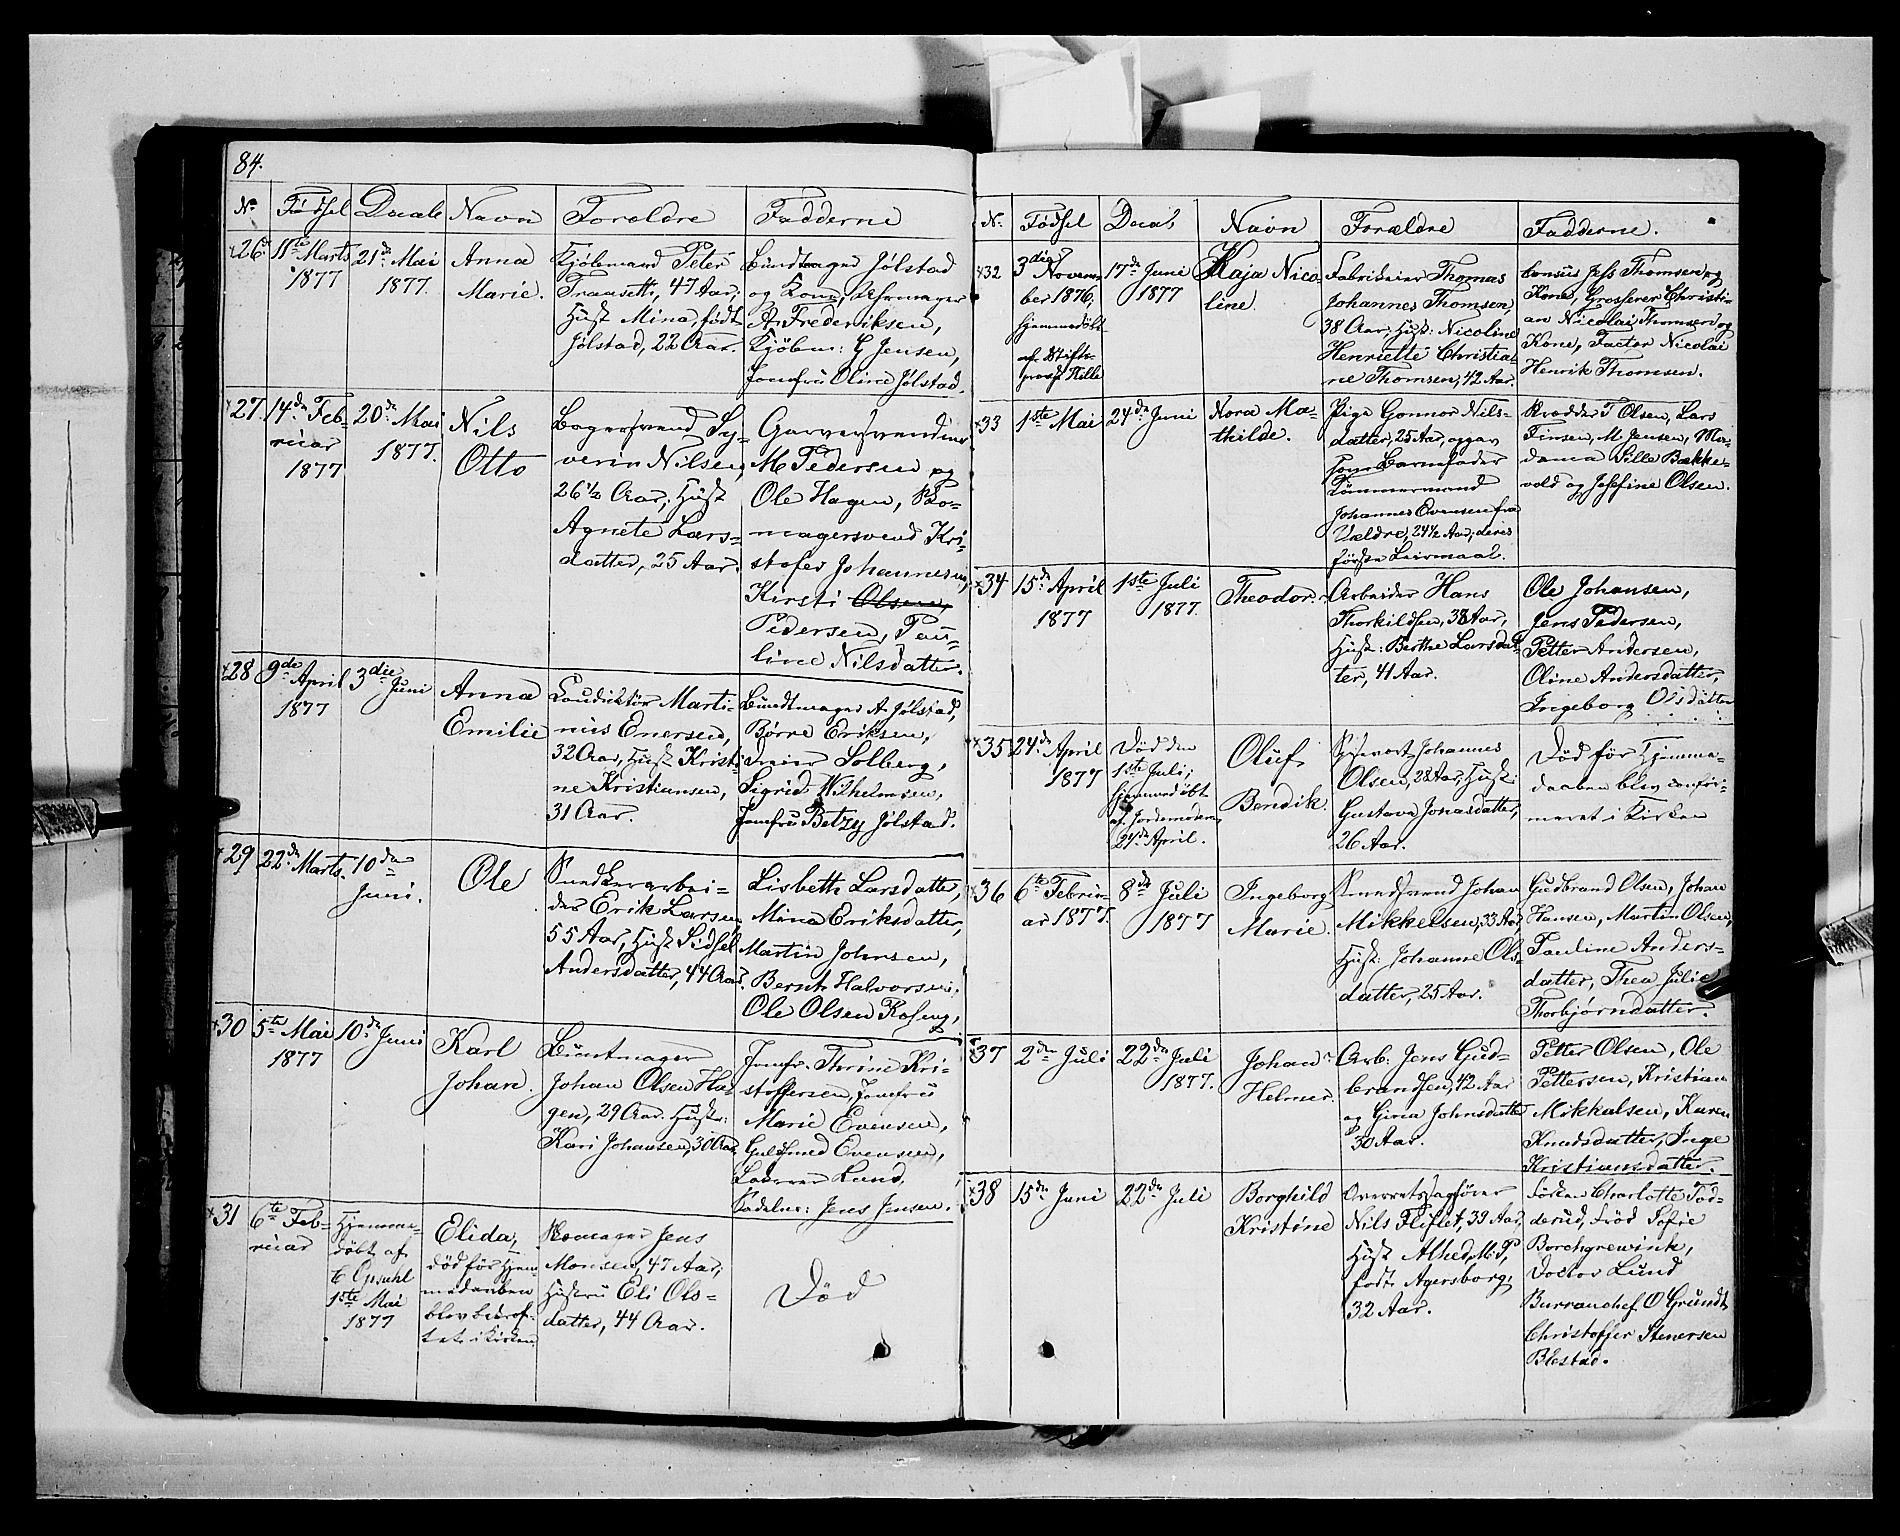 84.
No Fødsel Daab Navn Forældre Fadderne
26 11te Marts
1877
21de Mai
1877.
Anna
Marie.
Kjøbmand Peter
47 Aar;
Hust Mina, født
Jølstad, 22 Aar.
Bundtmager Jølstad
og Kone,
A. Frederiksen,
Kjøbm: G Jensen,
Jomfru Oline Jølstad.
27 14de Feb-
ruar
1877
20de Mai
1877.
Nils
Otto
Bagersvend Sy-
verin Nilsen,
26 1/2 Aar, Hust
Agnete Lars-
datter, 25 Aar.
Garversvendene
M Pedersen og
Ole Hagen, Sko-
magersvend Kri-
stofer Johannesen,
Kirsti Olsen,
Pedersen, Pau-
line Nilsdatter.
28 9de April
1877
3die Juni
Anna
Emilie
Konduktør Marti-
nius Enersen,
32 Aar, Hust Kristi-
ne Kristiansen,
31 Aar.
Bundtmager A Jølstad,
Børre Eriksen,
Solberg,
Sigrid Wilhelmsen,
Jomfru Betzy Jølstad.
29 22de Marts.
10de
Juni.
Ole
Snedkerarbei-
der Erik Larsen,
55 Aar, Hust Sidsel
Andersdatter, 44 Aar.
Lisbeth Larsdatter,
Mina Eriksdatter,
Martin Johnsen,
Bernt Halvorsen,
Ole Olsen Koseng,
30 5te Mai
1877
10de Juni
Karl
Johan.
Buntmager
Johan Olsen Ha-
gen, 29 Aar. Hustr:
Kari Johansen, 30 Aar
Jomfr. Thrine Kri-
stoffersen, Jomfru
Marie Evensen,
Guldsmed Evensen,
Lund,
Sadelm: Jens Jensen.
31 6te Feb-
ruar
Hjemme-
døbt af
E Opsahl
1ste Mai
1877
Elida,
død før Hjem-
medaaben
blev bekræf-
tet i Kirken
Skomager Jens
Monsen, 47 Aar;
Hustru Eli Ols-
datter, 44 Aar.
Død
No. Fødsel Daab Navn Forældre Fadderne.
32 3die Novem-
ber 1876,
hjemmedøbt
af Stifts-
provst Hille
17de Juni
1877
Kaja Nico-
line.
Fabrikeier Thomas
Johannes Thomsen,
38 Aar, Hust: Nicoline
Henriette Christia-
ne Thomsen, 42 Aar.
Consul Jess Thomsen og
Kone, Grosserer Christi-
an Nicolai Thomsen og
Kone, Factor Nicolai
Henrik Thomsen.
33 1ste Mai
24de Juni
Nora Ma-
thilde.
Pige Gonnor Nils-
datter, 25 Aar, opgav
som Barnefader
Tømmermand
Johannes Evensen fra
Vældre, 24 1/2 Aar; deres
første Leiermaal.
Skrædder T Olsen, Lars
Finsen, M Jensen, Ma-
dama Sille Bække-
vold og Josefine Olsen.
34 15de April
1877
1ste Juli
1877.
Theodor.
Arbeider Hans
Thorkildsen, 38 Aar,
Hust: Berthe Larsdat-
ter, 41 Aar.
Ole Johansen,
Jens Pedersen,
Petter Andersen,
Oline Andersdatter,
Ingeborg Olsdatter
35 24de April
1877
Død den
1ste Juli;
hjemmedøbt
af Jordemoderen
24de April.
Oluf
Bendik.
Johannes
Olsen, 28 Aar, Hust:
Gustava Jonasdatter,
26 Aar.
Død før Hjemme-
daaben blev confir-
meret i Kirken
36 6te Febru-
ar 1877.
8de Juli
1877
Ingeborg
Marie.
Smedsvend Johan
Mikkelsen, 33 Aar,
Hust: Johanne Ols-
datter, 25 Aar.
Gudbrand Olsen, Johan
Hansen, Martin Olsen,
Pauline Anders-
datter, Thea Julie
Thorbjørndatter.
37 2de Juli
22de Juli
1877.
Johan
Helmer.
Arb: Jens Gud-
brandsen, 42 Aar
og Gina Johnsdatter
30 Aar.
Petter Olsen, Ole
Pettersen, Kristian
Mikkalsen, Karen
Knudsdatter, Inge
Kristiansdatter.
38 15de Juni
22de Juli
Borghild
Kristine
Overretssagfører
Nils Fliflet, 39 Aar,
Hust Alhed M. P,
født Agersborg,
32 Aar.
Frøken Charlotte Fod-
derud, Frød Sofie
Borchgrewink,
Doctor Lund
Burrauchef O Grundt
Christoffer Stenersen
Blestad.